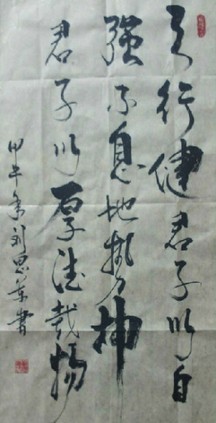 天行健君子以自
强不息地势坤
君子以厚德载物
甲午年刘思叶书